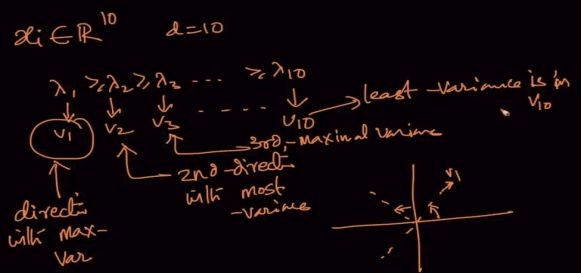 xi ∈ ℝ^10 d=10
λ1 ≥ λ2 ≥ λ3 ---- ≥ λ10
v1 v2 v3 ----- v10
least -variance is in
v10
3rd -maximal variance
2nd -directi
with most
-variance
directi
with max-
var
v1